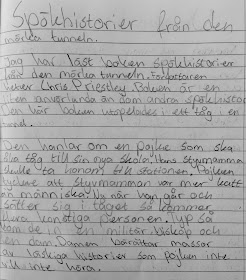 Spökhistorier från den
mörka tunneln.
Jag har läst boken spökhistorier
från den mörka tunneln. Författaren
heter Chris Priestley. Boken är en
liten annorlunda än som andra spökhistor
Den här boken utspelades i ett tåg i en
Den hanlar om en pojke som ska
åka tåg till sin nya skola. Hans styvmamma
skulle ta honom till stationen. Pojken
att styvmamman var mer katt
än människa. Ny när han går och
sätter sig i tåget så kommer
flera konstiga personer. Typ så
kom de in en militär, biskop och
en dam. Damen berättar massor
av läskiga historier som pojken inte
vill inte höra.